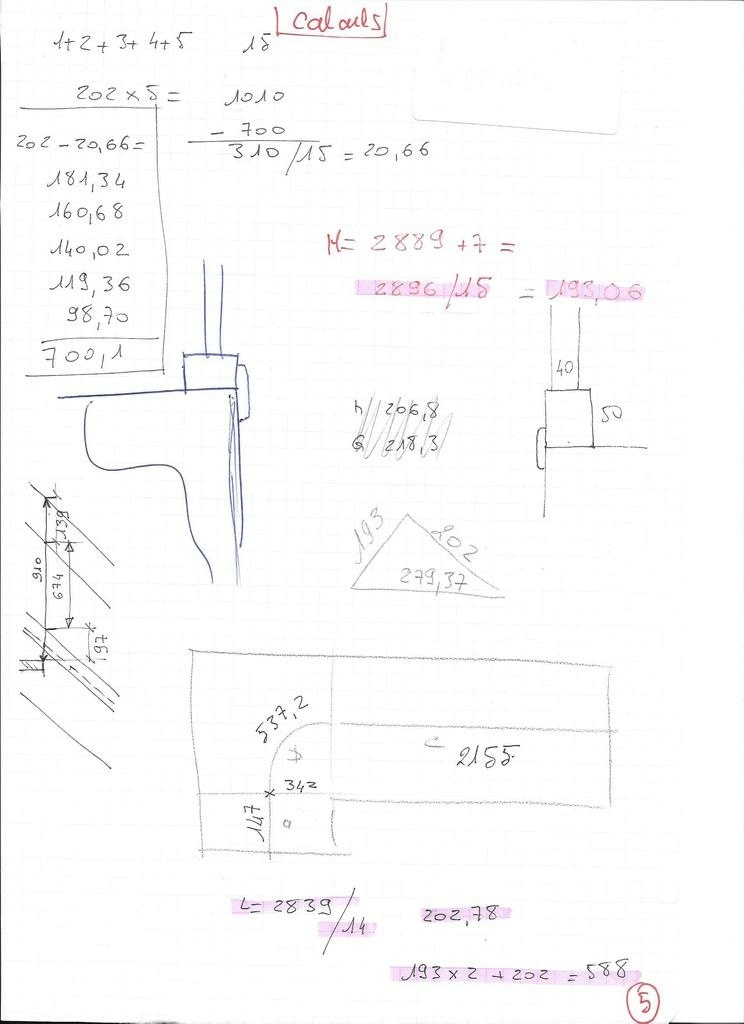 Calculs
1+2+3+4+5 15
202 x 5 = 1010
- 700
310/15 = 20,66
202 - 20,66 =
181,34
160,68
140,02
119,36
98,70
700,1
H= 2889 +7 =
2896/15 = 193,06
40
50
H 206,8
G 218,3
193
202
279,37
139
910
674
197
537,2
A
C
2155
342
147
B
L= 2839/14 202,78
193 x 2 + 202 = 588
5